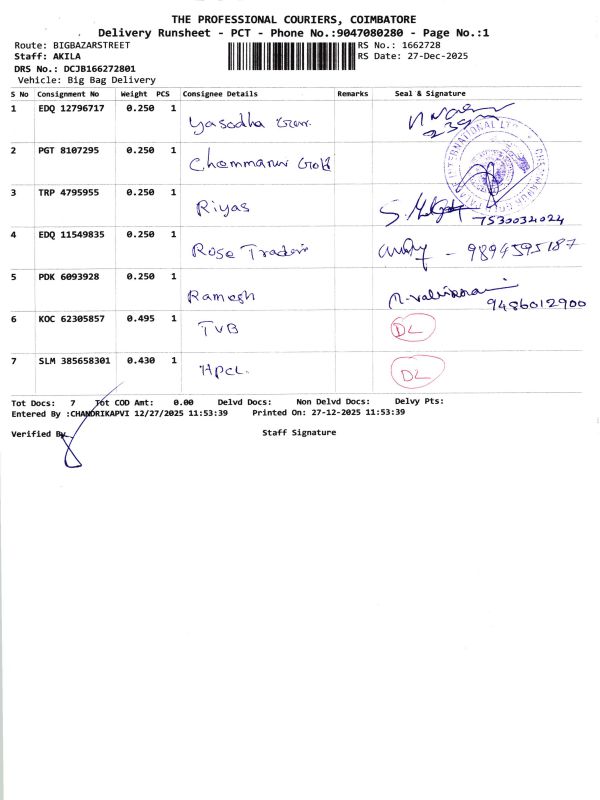 THE PROFESSIONAL COURIERS, COIMBATORE
Delivery Runsheet - PCT - Phone No.:9047080280 - Page No.:1
Route: BIGBAZARSTREET RS No.: 1662728
Staff: AKILA RS Date: 27-Dec-2025
DRS No.: DCJB166272801
Vehicle: Big Bag Delivery
S No Consignment No Weight PCS Consignee Details Remarks Seal & Signature
1 EDQ 12796717 0.250 1 Yasodha
2 PGT 8107295 0.250 1 Chemmanur Gold
INTERNATIONAL
3 TRP 4795955 0.250 1 Riyas 7530034024
4 EDQ 11549835 0.250 1 Rose Traders - 9894595187
5 PDK 6093928 0.250 1 Ramesh 9486012900
6 KOC 62305857 0.495 1 TVB DL
7 SLM 385658301 0.430 1 HPCL. DL
Tot Docs: 7 Tot COD Amt: 0.00 Delvd Docs: Non Delvd Docs: Delvy Pts:
Entered By :CHANDRIKAPVI 12/27/2025 11:53:39 Printed On: 27-12-2025 11:53:39
Verified By Staff Signature